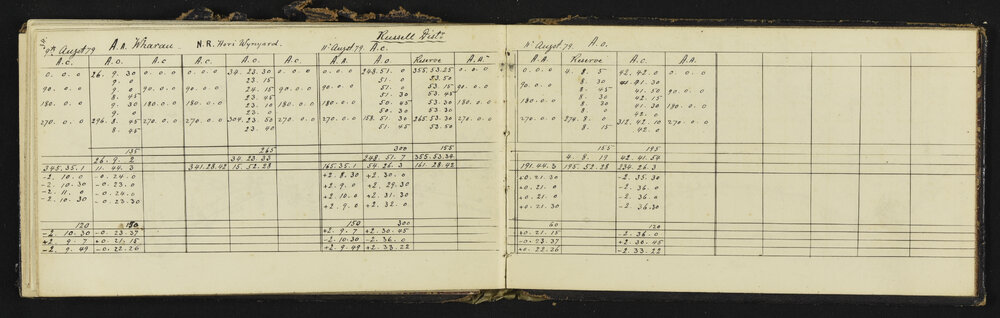 Russell Dist.
9th Augst 79 A. A. Wharau N.R. Hori Wynyard. 11' Augst 79 A.C. 11' Augst 79. A.o.
A.c. A.o. A.c. A.o. A.c. A.c. A.o. Reserve A.A. A.A. Reserve A.c. A.A.
0. 0. 0 26. 9. 30 0. 0. 0 34. 23. 30 0. 0. 0 0. 0. 0 248. 51. 0 355. 53. 25 0. 0. 0 0. 0. 0 4. 8. 5 42. 42. 0 0. 0. 0
9. 0 23. 15 51. 0 53. 50 8. 30 41. 41. 30
90. 0. 0 9. 0 90. 0. 0 24. 15 90. 0. 0 90. 0. 0 51. 0 53. 15 90. 0. 0 90. 0. 0 8. 45 41. 50 90. 0. 0
8. 45 23. 45 51. 0 53. 30 8. 30 42. 15
180. 0. 0 9. 30 180. 0. 0 23. 10 180. 0. 0 180. 0. 0 50. 45 53. 30 180. 0. 0 180. 0. 0 8. 0 41. 30 180. 0. 0
9. 0 23. 0 50. 30 53. 30 8. 45 42. 0
270. 0. 0 296. 8. 45 270. 0. 0 304. 23. 50 270. 0. 0 270. 0. 0 158. 51. 30 265. 53. 30 270. 0. 0 270. 0. 0 274. 8. 0 312. 42. 10 270. 0. 0
8. 45 23. 40 51. 45 53. 50 8. 15 42. 0
135 265 300 155 155 195
26. 9. 2 34. 23. 33 248. 51. 7 355. 53. 34 4. 8. 19 42. 41. 54
345. 35. 1 11. 44. 3 341. 28. 42 15. 52. 28 165. 35. 1 54. 26. 3 161. 28. 42 191. 44. 3 195. 52. 28 234. 26. 3
-2. 10. 0 -0. 24. 0 +2. 8. 30 +2. 30. 0 +0. 21. 30 -2. 35. 30
-2. 10. 30 -0. 23. 0 +2. 9. 0 +2. 29. 30 +0. 21. 0 -2. 36. 0
-2. 11. 0 -0. 24. 0 +2. 10. 0 +2. 31. 30 +0. 21. 0 -2. 36. 0
-2. 10. 30 -0. 23. 30 +2. 9. 0 +2. 32. 0 +0. 21. 30 -2. 36. 30
120 150 150 300 60 120
-2. 10. 30 -0. 23. 37 +2. 9. 7 +2. 30. 45 +0. 21. 15 -2. 36. 0
+2. 9. 7 +0. 21. 15 -2. 10. 30 -2. 36. 0 -0. 23. 37 +2. 30. 45
-2. 9. 49 -0. 22. 26 +2. 9. 49 +2. 33. 22 +0. 22. 26 -2. 33. 22